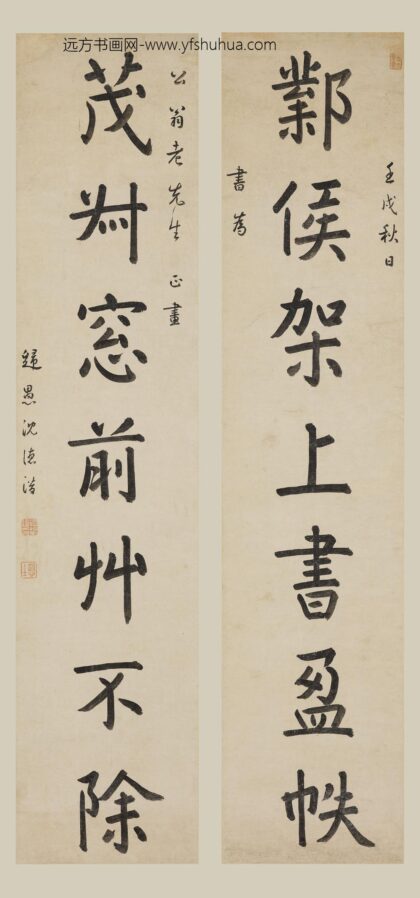 远方书画网-www.yfshuhua.com
壬戌秋日
鄴侯架上書盈帙
書為
公翁老先生 正畫
茂叔窓前艸不除
歸愚沈德潛